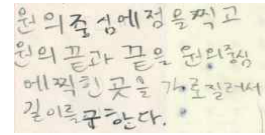 원의중심에점을찍고
원의 끝과 끝을 원의중심
에찍힌 곳을 가로질러서
길이를구한다.